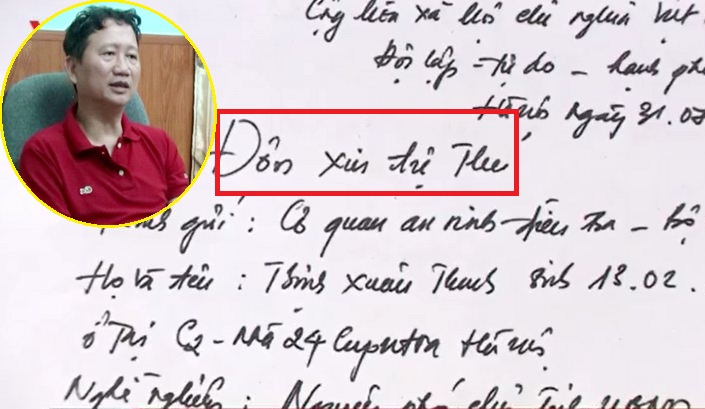 Cộng hòa xã hội chủ nghĩa Việt
Độc lập - tự do - hạnh phú
Hà Nội ngày 31.07
Đơn xin tự Thú
Kính gửi : Cơ quan an ninh điều tra - bộ
Họ và tên : Trịnh Xuân Thanh sinh 13.02.
ở Tại C2 - Nhà 24 Ciputra Hà nội
Nghề nghiệp : Nguyên phó chủ Tịch UBND